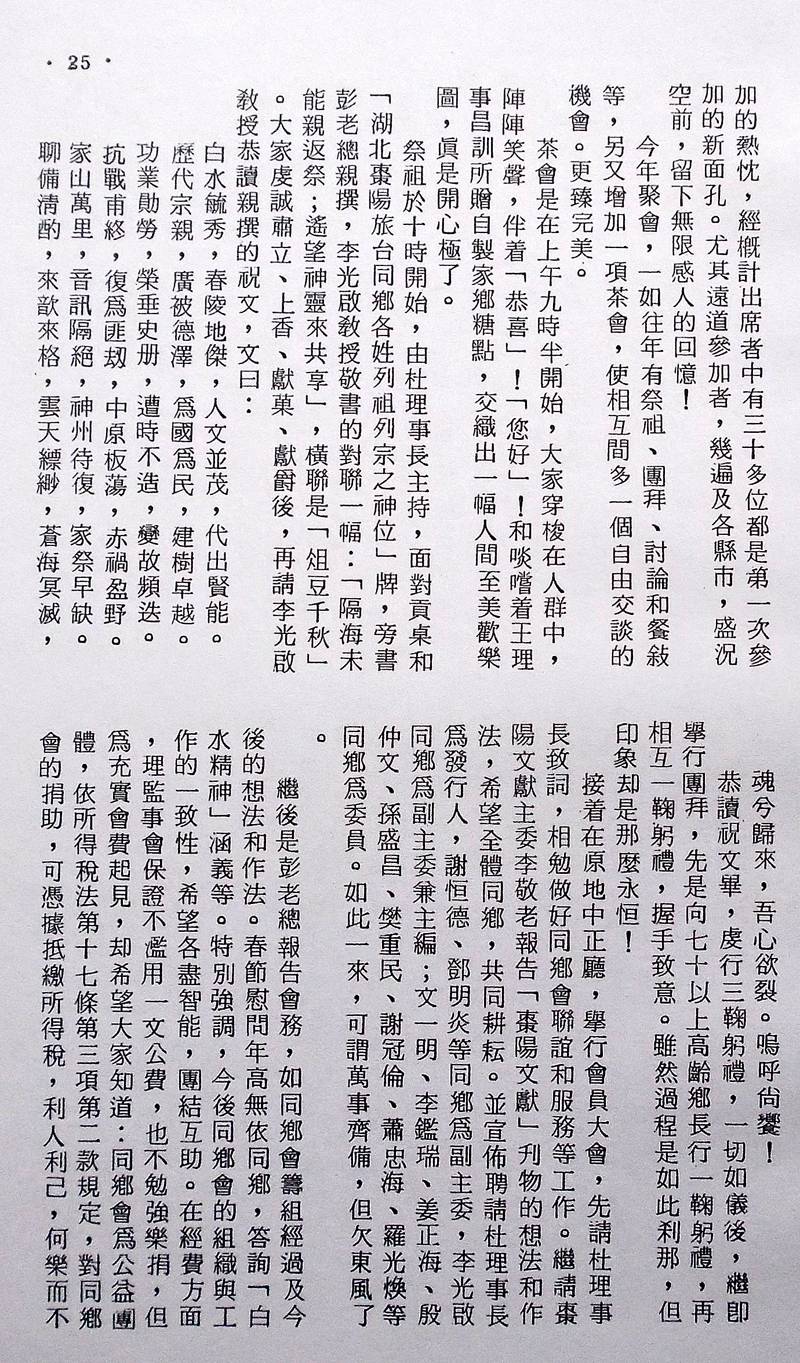 • 25 •
加的熱忱，經概計出席者中有三十多位都是第一次參
加的新面孔。尤其遠道參加者，幾遍及各縣市，盛況
空前，留下無限感人的回憶！
今年聚會，一如往年有祭祖、團拜、討論和餐敍
等，另又增加一項茶會，使相互間多一個自由交談的
機會。更臻完美。
茶會是在上午九時半開始，大家穿梭在人群中，
陣陣笑聲，伴着「恭喜」！「您好」！和啖嚐着王理
事昌訓所贈自製家鄉糖點，交織出一幅人間至美歡樂
圖，眞是開心極了。
祭祖於十時開始，由杜理事長主持，面對貢桌和
「湖北棗陽旅台同鄉各姓列祖列宗之神位」牌，旁書
彭老總親撰，李光啟敎授敬書的對聯一幅：「隔海未
能親返祭；遙望神靈來共享」，橫聯是「俎豆千秋」
。大家虔誠肅立、上香、獻菓、獻爵後，再請李光啟
敎授恭讀親撰的祝文，文曰：
白水毓秀，舂陵地傑，人文並茂，代出賢能。
歷代宗親，廣被德澤，爲國爲民，建樹卓越。
功業勛勞，榮垂史册，遭時不造，變故頻迭。
抗戰甫終，復爲匪刼，中原板蕩，赤禍盈野。
家山萬里，音訊隔絕，神州待復，家祭早缺。
聊備清酌，來歆來格，雲天縹緲，蒼海冥滅，
魂兮歸來，吾心欲裂。嗚呼尙饗！
恭讀祝文畢，虔行三鞠躬禮，一切如儀後，繼卽
舉行團拜，先是向七十以上高齡鄉長行一鞠躬禮，再
相互一鞠躬禮，握手致意。雖然過程是如此刹那，但
印象却是那麼永恒！
接着在原地中正廳，舉行會員大會，先請杜理事
長致詞，相勉做好同鄉會聯誼和服務等工作。繼請棗
陽文獻主委李敬老報告「棗陽文獻」刋物的想法和作
法，希望全體同鄉，共同耕耘。並宣佈聘請杜理事長
爲發行人，謝恒德、鄧明炎等同鄉爲副主委，李光啟
同鄉爲副主委兼主編；文一明、李鑑瑞、姜正海、殷
仲文、孫盛昌、樊重民、謝冠倫、蕭忠海、羅光煥等
同鄉爲委員。如此一來，可謂萬事齊備，但欠東風了
。
繼後是彭老總報告會務，如同鄉會籌組經過及今
後的想法和作法。春節慰問年高無依同鄉，答詢「白
水精神」涵義等。特別強調，今後同鄉會的組織與工
作的一致性，希望各盡智能，團結互助。在經費方面
，理監事會保證不濫用一文公費，也不勉強樂捐，但
爲充實會費起見，却希望大家知道：同鄉會爲公益團
體，依所得稅法第十七條第三項第二款規定，對同鄉
會的捐助，可憑據抵繳所得稅，利人利己，何樂而不